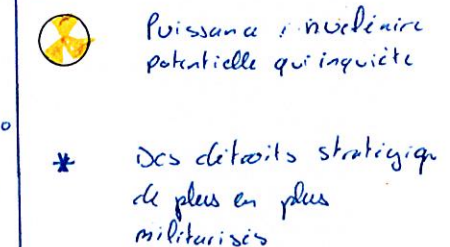 Puissance nucléaire
potentielle qui inquiète
Des détroits stratégiqu
de plus en plus
militarisés